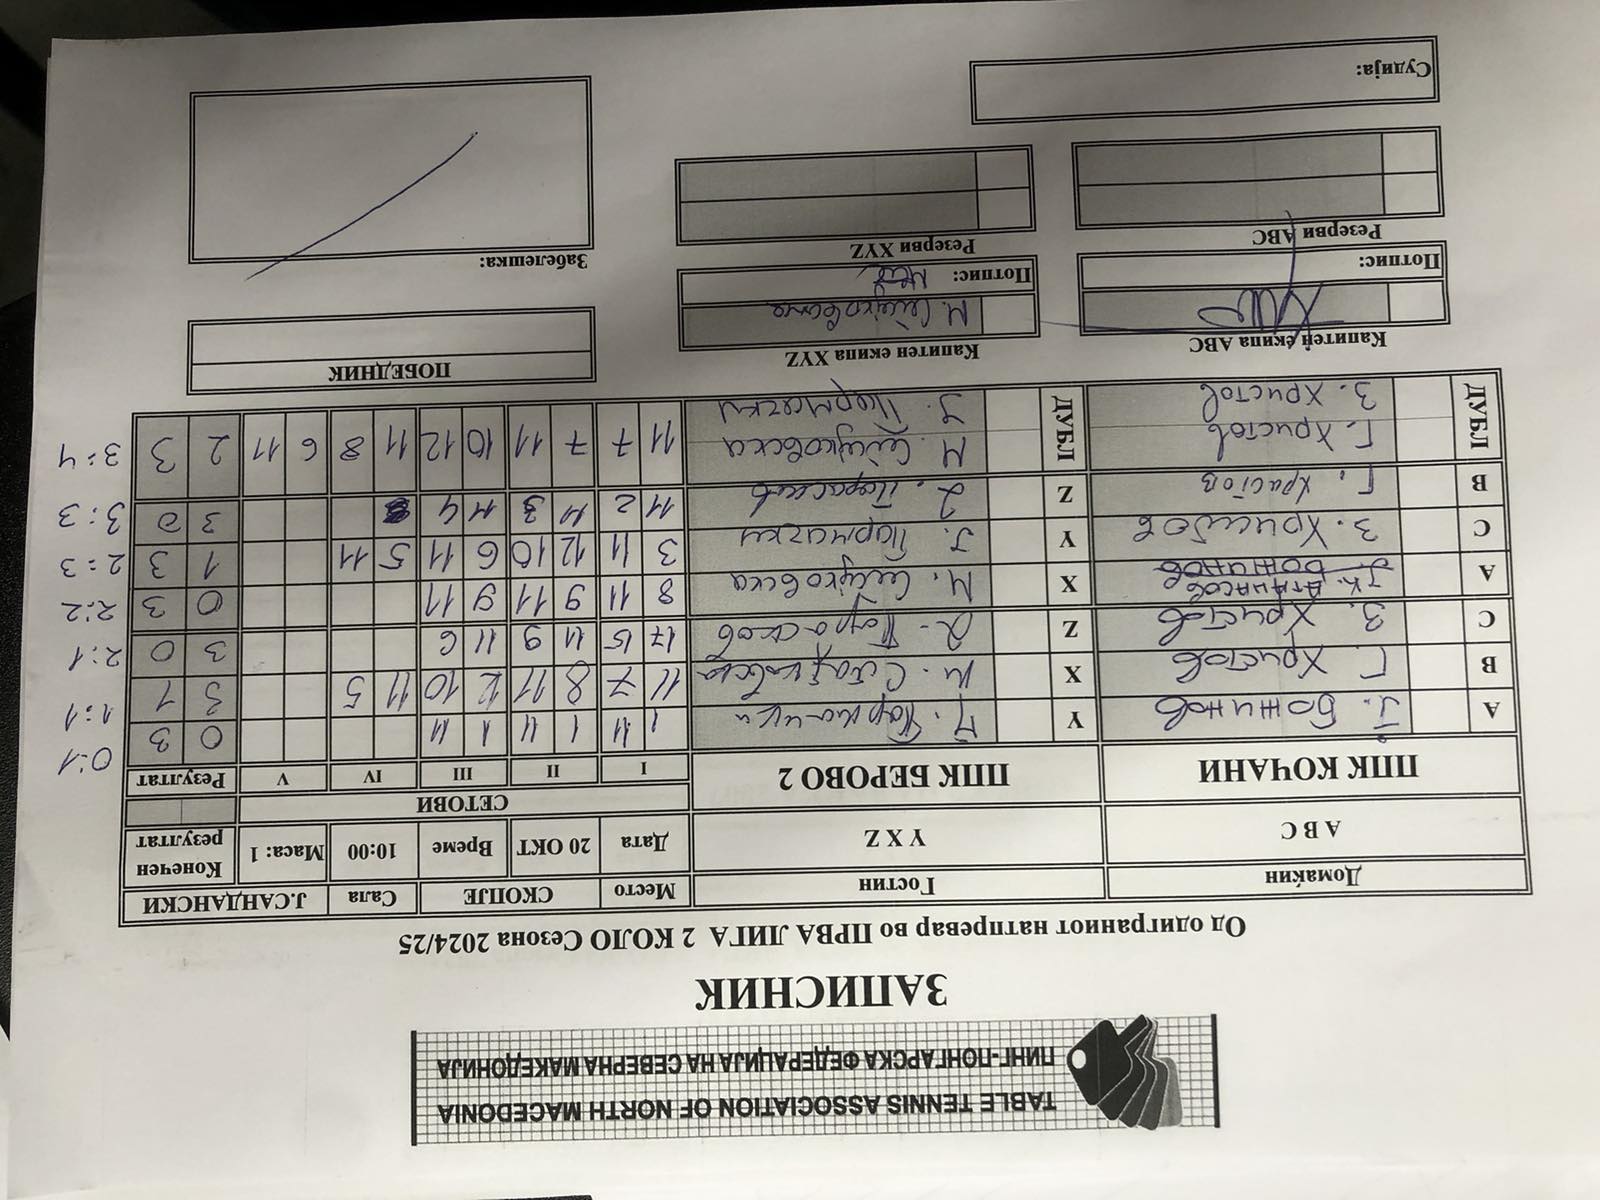 TABLE TENNIS ASSOCIATION OF NORTH MACEDONIA
ПИНГ-ПОНГАРСКА ФЕДЕРАЦИЈА НА СЕВЕРНА МАКЕДОНИЈА
ЗАПИСНИК
Од одиграниот натпревар во ПРВА ЛИГА 2 КОЛО Сезона 2024/25
Домаќин Гостин Место СКОПЈЕ Сала Ј.САНДАНСКИ
A B C Y X Z Дата 20 ОКТ Време 10:00 Маса: 1 Конечен резултат
ППК КОЧАНИ ППК БЕРОВО 2 СЕТОВИ
I II III IV V Резултат
A Ј. Божинов Y 1 11 1 11 1 11 0 3 0:1
B Г. Христов X 11 7 8 11 12 10 11 5 3 1 1:1
C З. Христов Z 17 15 11 9 11 6 3 0 2:1
A X 8 11 9 11 9 11 0 3 2:2
C З. Христов Y 3 11 12 10 6 11 5 11 1 3 2:3
B Г. Христов Z 11 2 11 3 11 4 3 0 3:3
ДУБЛ Г. Христов ДУБЛ 11 7 7 11 10 12 11 8 6 11 2 3 3:4
З. Христов
Капитен екипа ABC Капитен екипа XYZ ПОБЕДНИК
Потпис: Потпис:
Забелешка:
Резерви ABC Резерви XYZ
Судија: